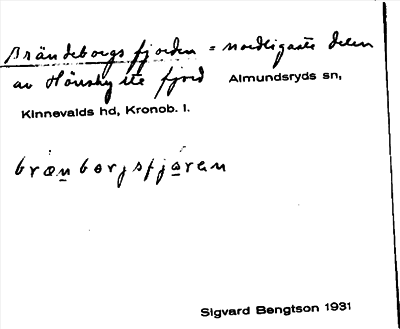 Brändeborgs fjorden = nordligaste delen
av Hönshyltefjord Almundsryds sn,
Kinnevalds hd, Kronob. l.
brænborjsfjøren
Sigvard Bengtson 1931